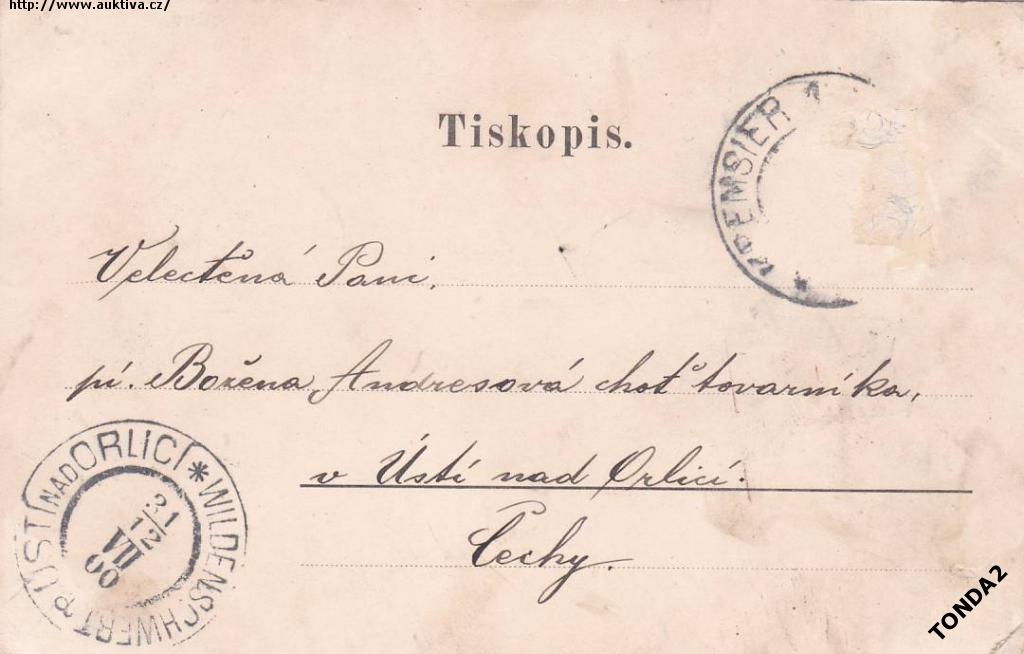 http://www.auktiva.cz/
Tiskopis.
KREMSIER 1
Velectěná Paní,
pí. Božena Andresová choť továrníka,
v Ústí nad Orlicí.
Čechy.
ÚSTÍ NAD ORLICÍ * WILDENSCHWERT
31
VII
00
TONDA2